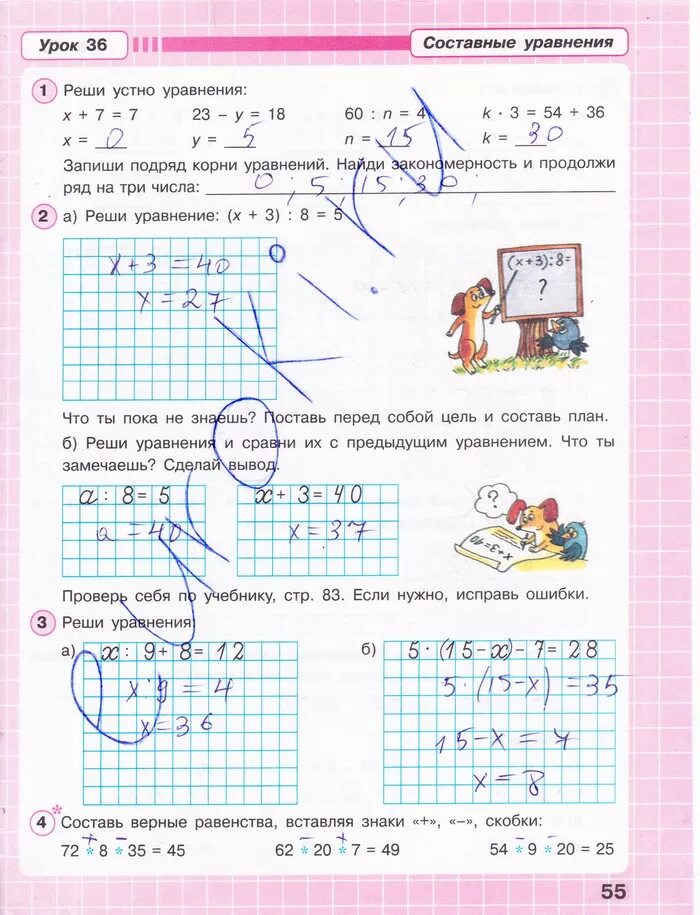 Урок 36
Составные уравнения
1 Реши устно уравнения:
x + 7 = 7 23 – y = 18 60 : n = 4 k · 3 = 54 + 36
x = 0 y = 5 n = 15 k = 30
Запиши подряд корни уравнений. Найди закономерность и продолжи
ряд на три числа: 0; 5; 15; 30;
2 а) Реши уравнение: (x + 3) : 8 = 5
x+3 = 40
x = 27
(x+3):8=
?
Что ты пока не знаешь? Поставь перед собой цель и составь план.
б) Реши уравнения и сравни их с предыдущим уравнением. Что ты
замечаешь? Сделай вывод.
a : 8 = 5 x + 3 = 40
a = 40 x = 37
?
x+3=40
Проверь себя по учебнику, стр. 83. Если нужно, исправь ошибки.
3 Реши уравнения:
а) x : 9 + 8 = 12 б) 5 · (15 – x) – 7 = 28
x : 9 = 4 5 · (15 – x) = 35
x = 36 15 – x = 7
x = 8
4* Составь верные равенства, вставляя знаки «+», «–», скобки:
+ – – + – –
72 * 8 * 35 = 45 62 * 20 * 7 = 49 54 * 9 * 20 = 25
55
uroki.ru